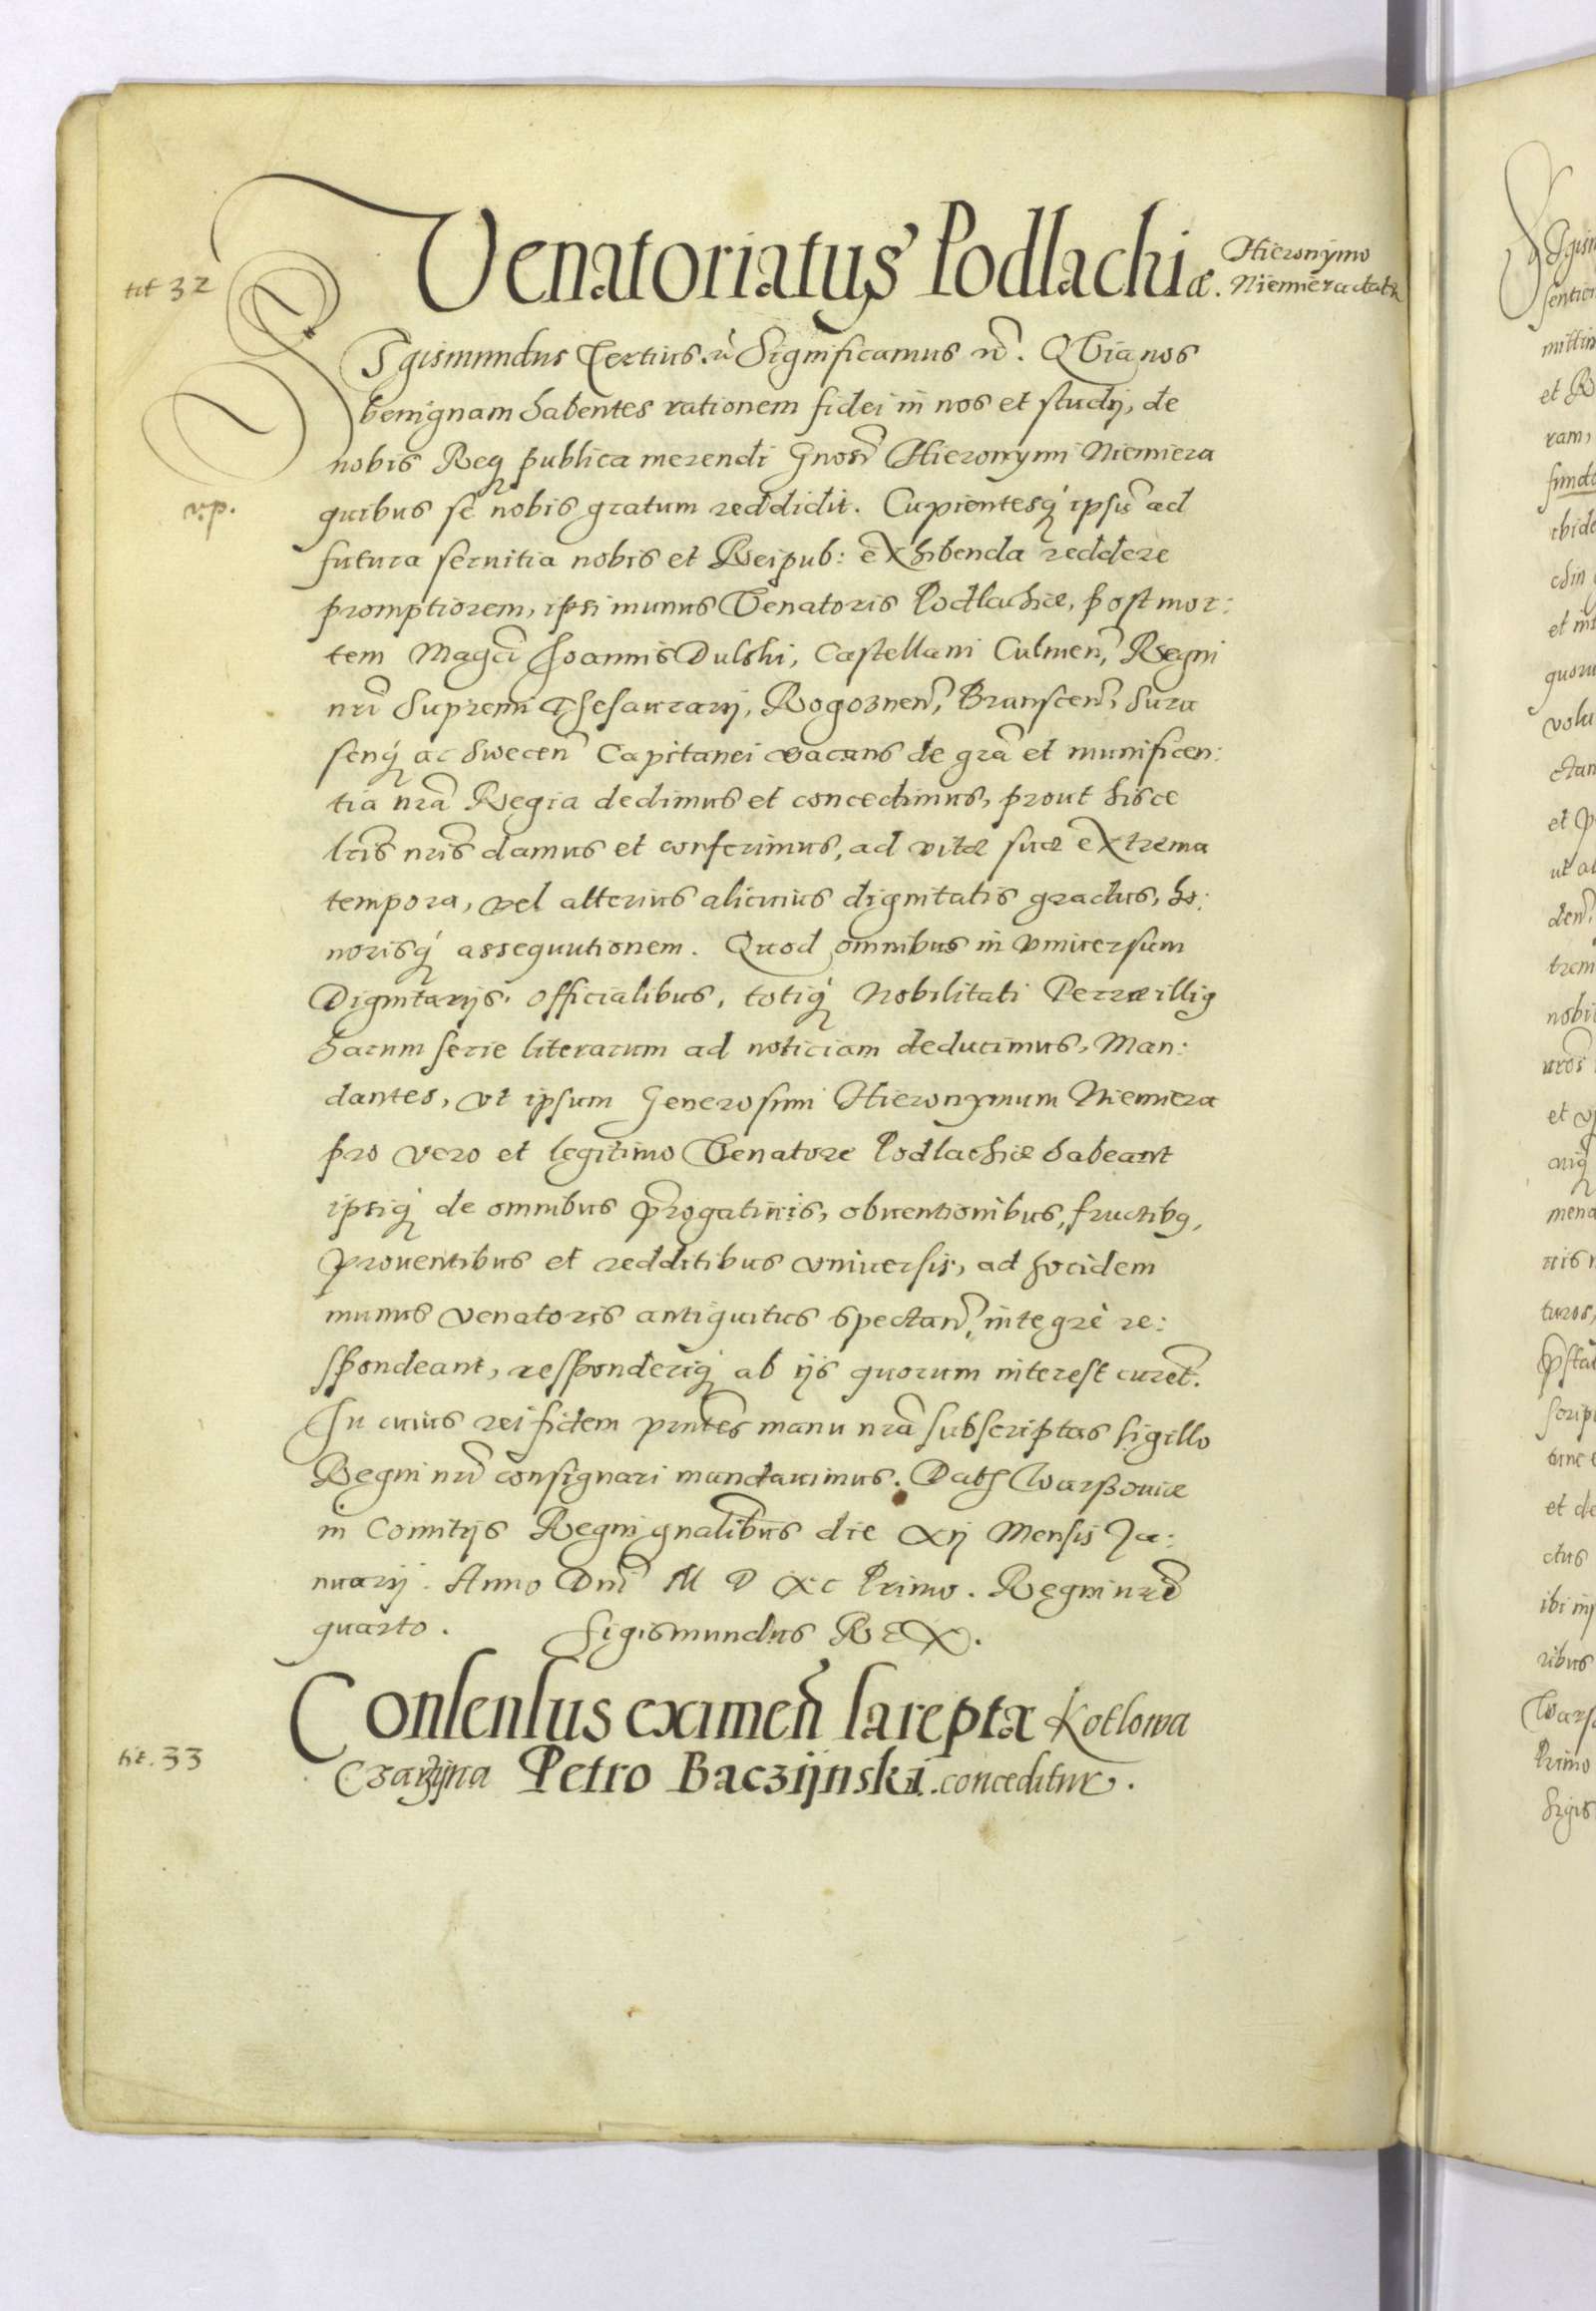 Venatoriatus Podlachiæ. Hieronymo
Niemiera datur
tit 32
SIgismundus Tertius. Significamus. QVia nos
benignam habentes rationem fidei in nos et studij, de
nobis Req publica merendi Gnosi Hieronymi Niemiera
v.p.
quibus se nobis gratum reddidit. Cupientesq ipsū ad
futura seruitia nobis et Reipub: exhibenda reddere
promptiorem, ipsi munus Venatoris Podlachiæ, post mor:
tem Magci Joannis Dulski, Castellani Culmen, Regni
nri Supremi Thesaurarij, Rogoznen, Branscen, Sura
senq ac Swecen Capitanei vacans de gra et munificen:
tia nra Regia dedimus et concedimus, prout hisce
lris nris damus et conferimus, ad vitæ suæ extrema
tempora, vel alterius alicuius dignitatis gradus, ho:
norisq assequutionem. Quod omnibus in vniuersum
Dignitarijs. Officialibus, totiq Nobilitati Terræ illig
harum serie literarum ad noticiam deducimus, Man:
dantes, vt ipsum Generosum Hieronymum Niemiera
pro vero et legitimo Venatore Podlachiæ habeant
ipsiq de omnibus prrogatiuis, obuentionibus, fructibq,
prouentibus et redditibus vniuersis, ad hocidem
munus venatoris antiquitus spectan, integrè re:
spondeant, responderiq ab ijs quorum interest curet.
In cuius rei fidem pntes manu nra subscriptas sigillo
Regni nri consignari mandauimus. Dat Warssouiæ
in Comitijs Regni gnalibus die xij Mensis Ja:
nuarij. Anno Dni M D XC Primo. Regni nri
quarto. Sigismundus REX.
Consensus eximen sarepta Kotlowa
tit. 33
Petro Baczijnski. conceditur.